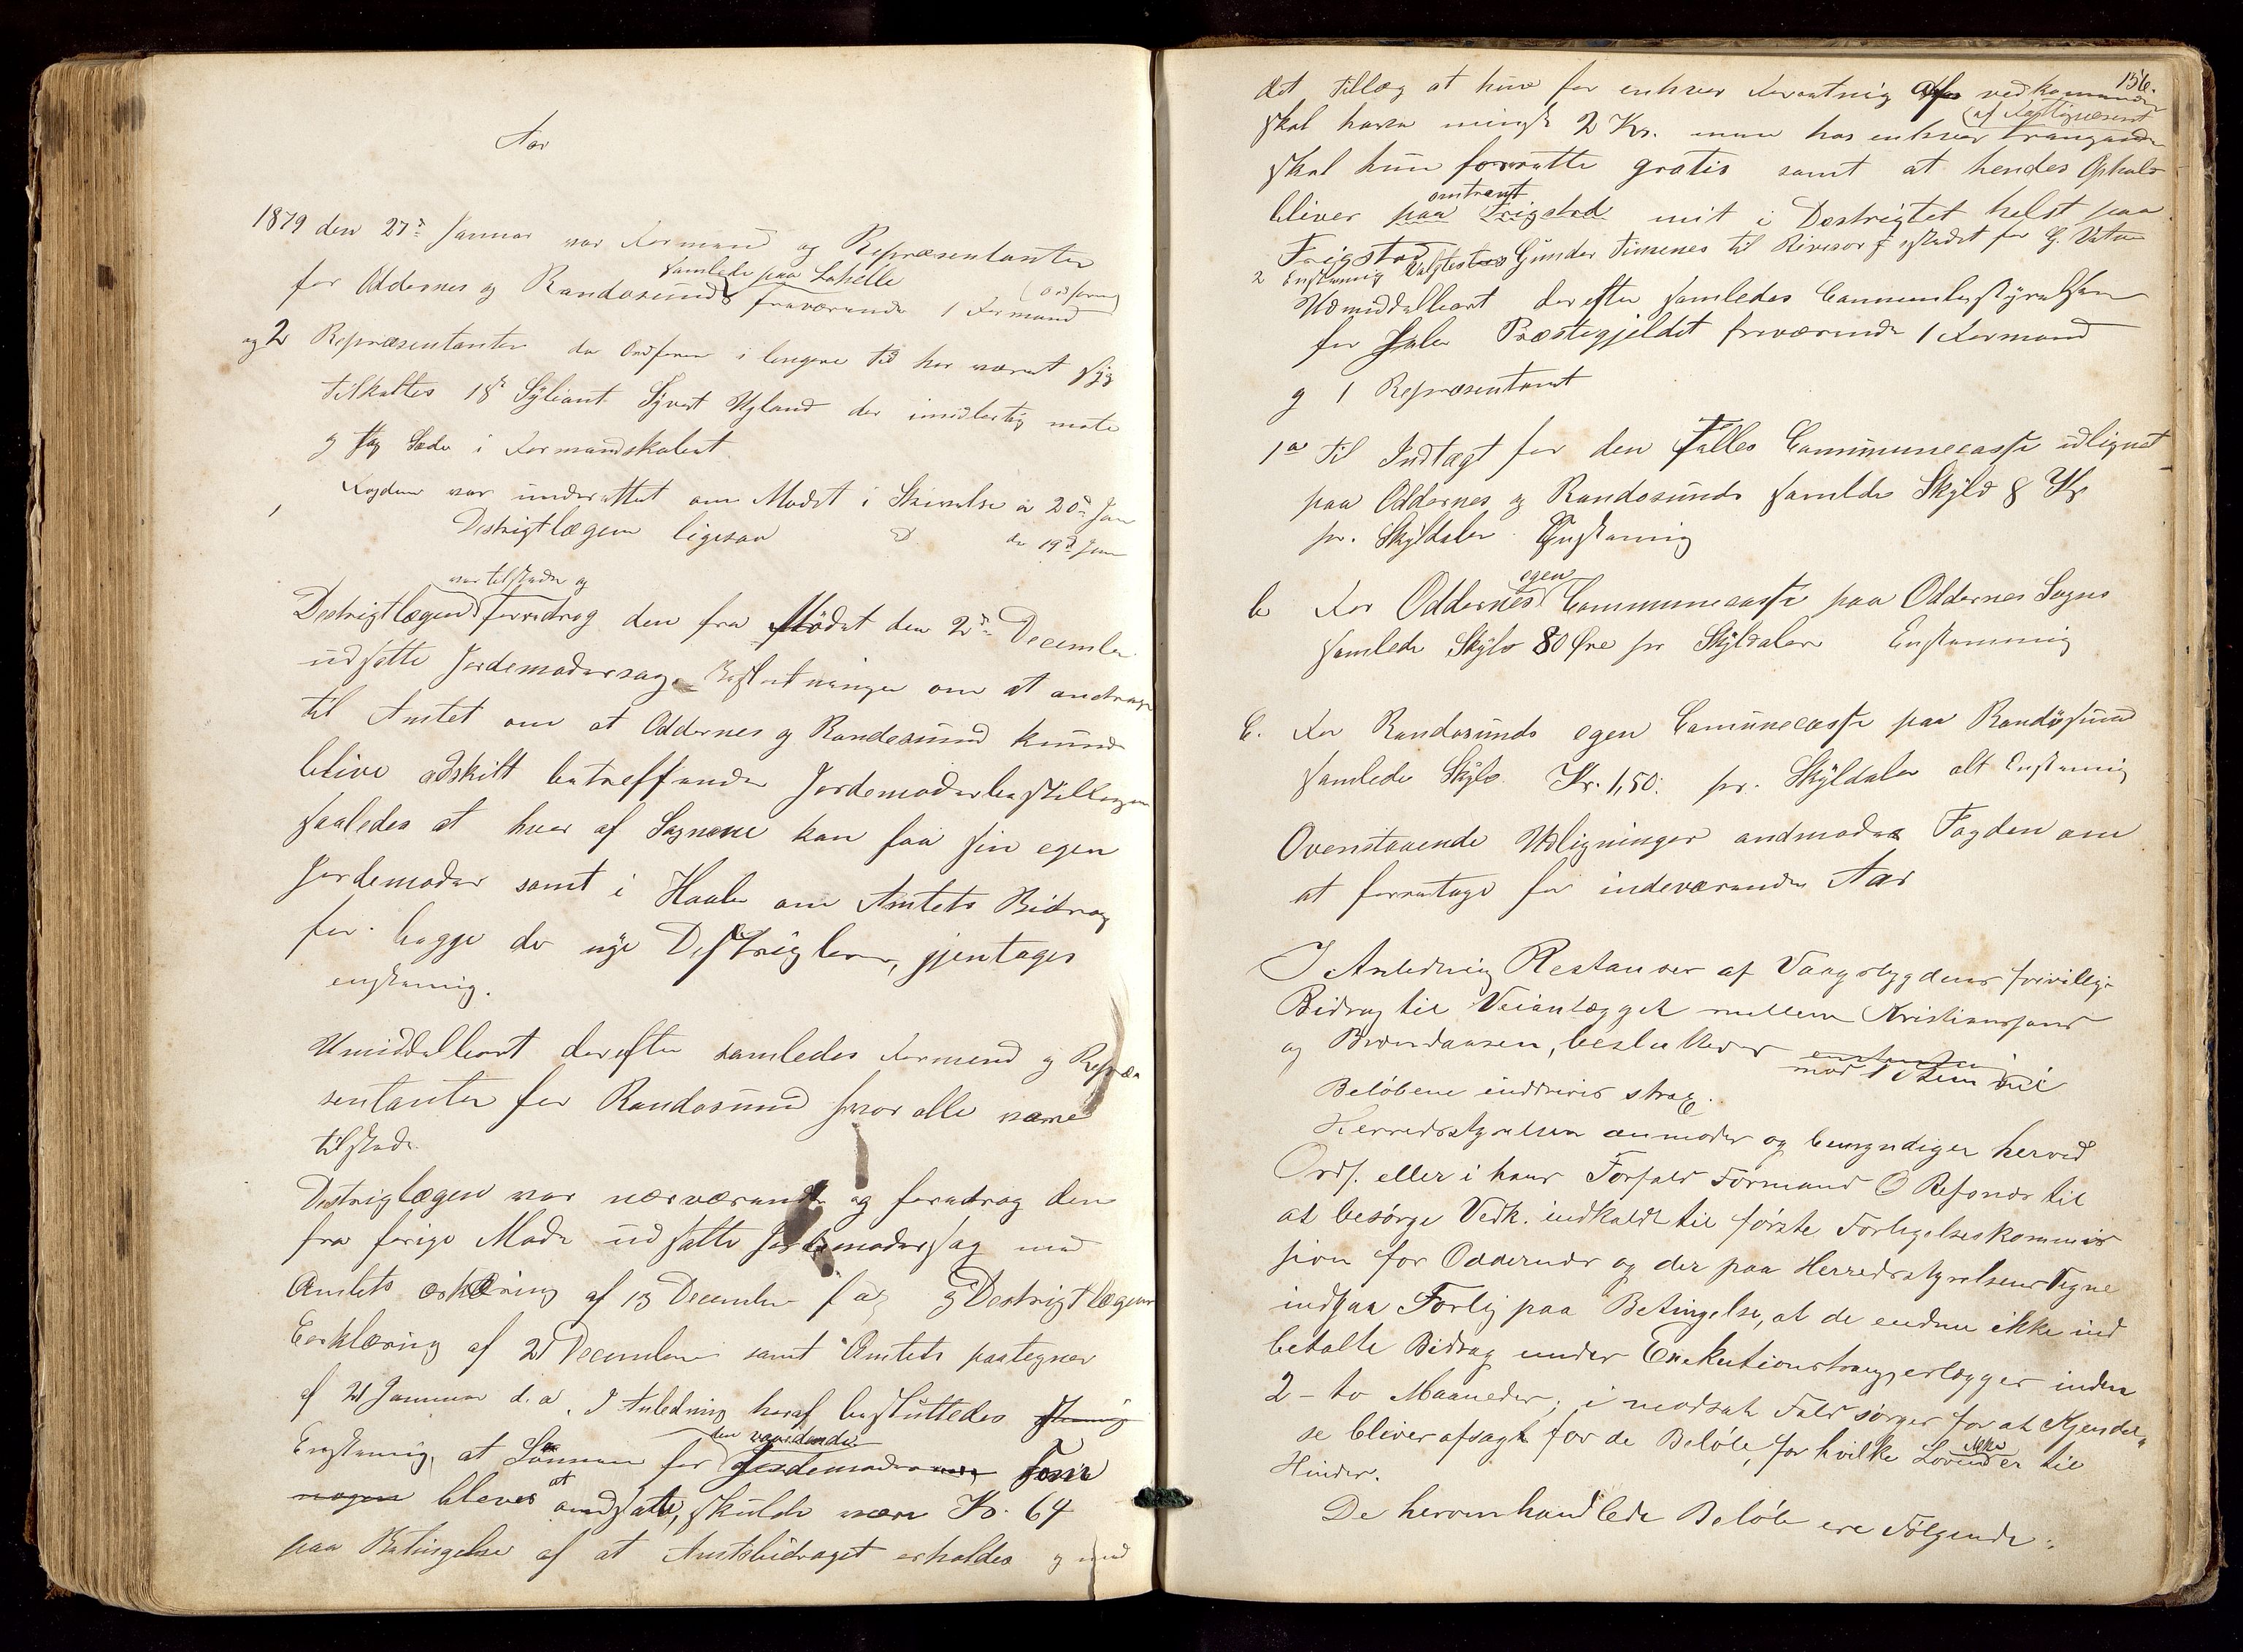 Aar
1879 den 27de Januar var Formænd og Repræsentanter
for Oddernes og Randøsunds samlede paa Lahelle
fraværende 1 Formand (Ordføreren)
og 2 Repræsentanter da Ordføreren i lengere tid har været syg
tilkaltes 1ste Supliant Syvert Ugland der imidlertig møte
og tog Sæde i Formandskabet
1 Fogden var underettet om Mødet i Skrivelse a 20de Jan
Destrigtlægen ligesaa D da 19de Jan
Destrigtlægen var tilstede og foredrog den fra Mødet den 2den December
udsatte Jordemodersag. Beslutningen om at andrage
til Amtet om at Oddernes og Randesund kunde
blive adskilt betreffende Jordemoderbestillingen
saaledes at hver af Sognene kan faa sin egen
Jordemoder samt i Haab om Amtets Bidrag
for begge de nye Destrigter, gjentages
enstemig.
Umiddelbart derefter samledes Formend og Repræ
sentanter for Randøsund hvor alle være
tilstede.
Destriglægen var nærværende og foredrog den
fra forige Møde udsatte Jordemodersag med
Amtets erklæring af 13 December f a, og Destrigtlægens
Eerklæring af 21 December samt Amtets paategner
af 21 Januar d. a. I Anledning heraf besluttedes
Enstemig, at Lønnen for den vordende Jordemoder som
nogen bleves at andsatte, skulde være Kr. 64
paa Betingelse af at Amtsbidraget erholdes og med
156.
det tillæg at hun for enhver Forretning af vedkommende
skal have mingst 2 Kr. men hos enhver trængende (af Fattigvæsent
skal hun forrætte gratis samt at hendes Ophold
bliver paa omtrent Frigstad mit i Destrigtet helst paa
Frigstad
2 Enstemig Valgtes Gunder Timenes til Revisor istedet for G. Vatne
Udmiddelbart derefter samledes Communebestyrelsen
for hele Præstegjeldet fraværende 1 Formand
og 1 Repræsentant
1 a Til Indtægt for den Fælles Communecasse udlignet
paa Oddernes og Randøsunds samlede Skyld 8 Kr
pr. Skyldaler. Enstemig
b For Oddernes egen Communecasse paa Oddernes Sogns
samlede Skyld 80 Øre pr Skyldaler Enstemmig
C. For Randøsunds egen Comunecasse paa Randøsund
samlede Skyld. Kr. 1,50. pr. Skyldaler alt Enstemig
Ovenstaaende Udligninger andmodes Fogden om
at forretage for indeværende Aar
I Anledning Restanser af Vaagsbygdens frivillige
Bidrag til Veianlægget mellem Kristianssand
og Brændaasen, besluttedes enstemmig mod 1 stem at
Beløbene inddrives strax.
Herredsstyrelsen anmoder og bemyndiger herved
Ordf. eller i hans Forfald Formand O Refsnes til
at besørge Vedk. indkaldt til første Forligelseskommis
sion for Oddernes og der paa Herredsstyrelsens Vegne
indgaa Forlig paa Betingelse, at de endnu ikke ind
betalte Bidrag under Exekutionstvang, erlægger inden
2 – to Maaneder; i modsat Fald sørger for at Kjendel„
se bliver afsagt for de Beløb, for hvilke Loven ikke er til
Hinder.
De heromhandlede Beløb ere Følgende: